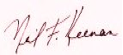 Neil F. Keenan